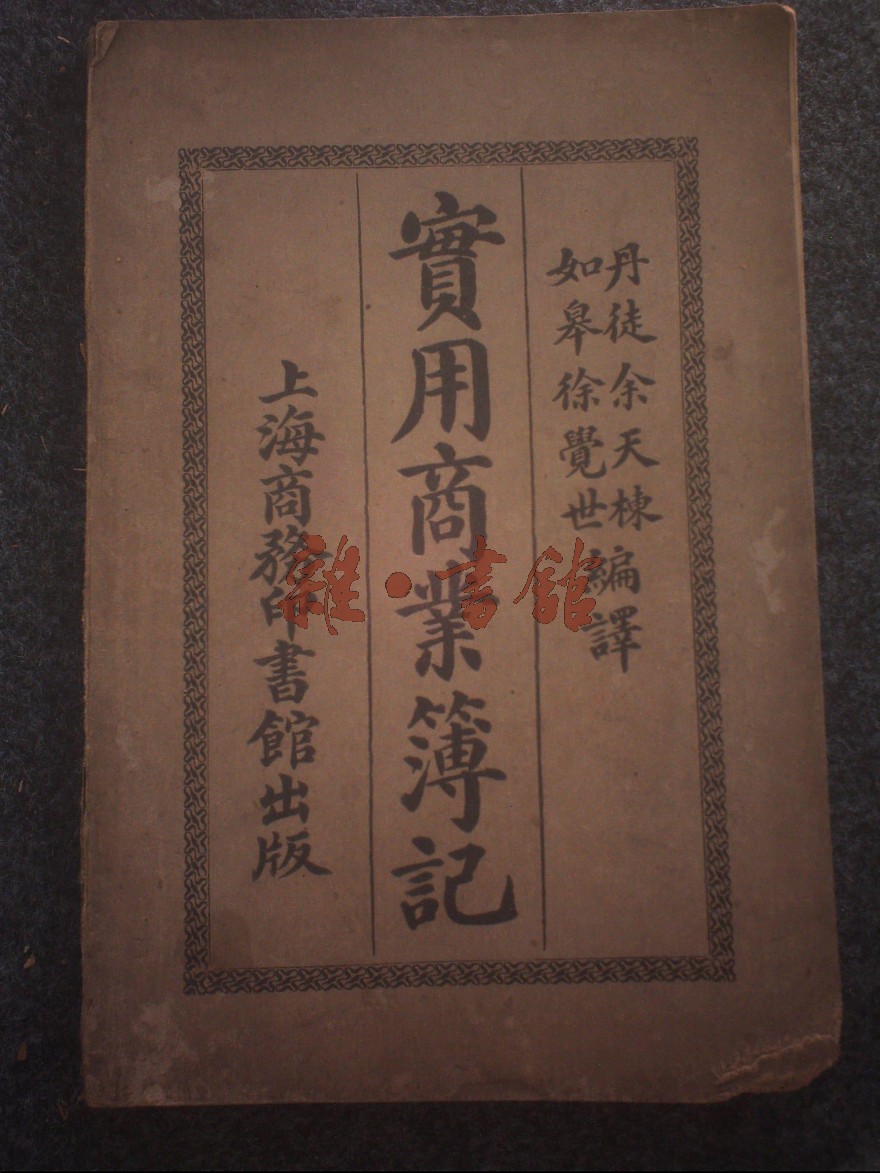 丹徒余天棟
如皋徐覺世
編譯
實用商業簿記
上海商務印書館出版
雜·書館